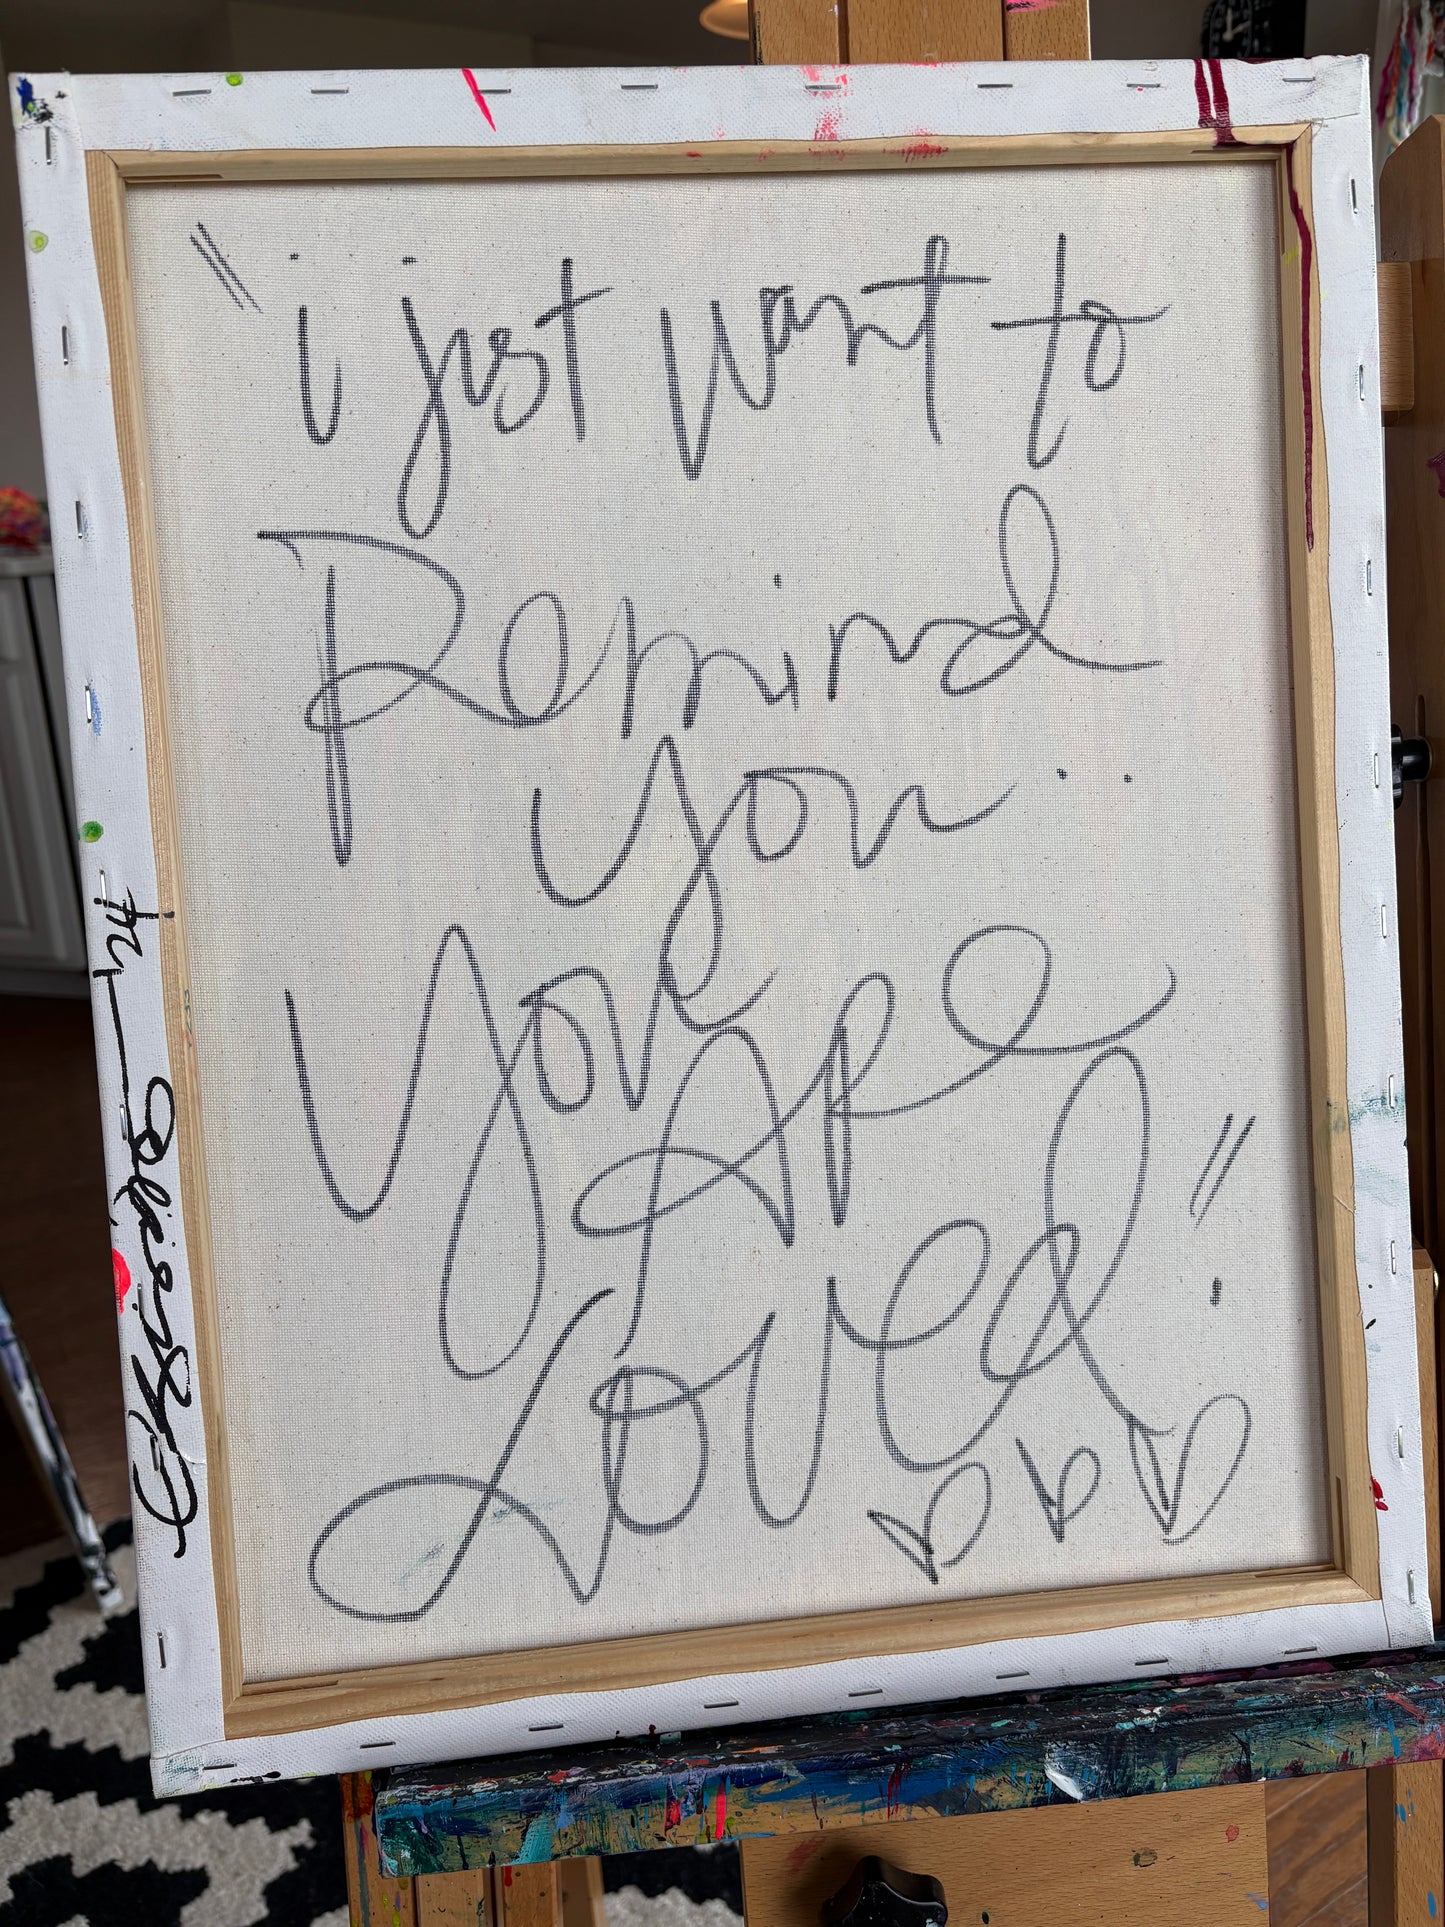 "i just want to
Remind
you..
you Are
Loved."
24